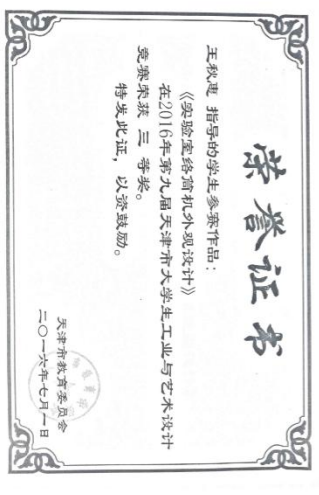 荣誉证书
王秋惠 指导的学生参赛作品：
《实验室络筒机外观设计》
在2016年第九届天津市大学生工业与艺术设计
竞赛荣获 三 等奖。
特发此证，以资鼓励。
天津市教育委员会
二〇一六年七月一日